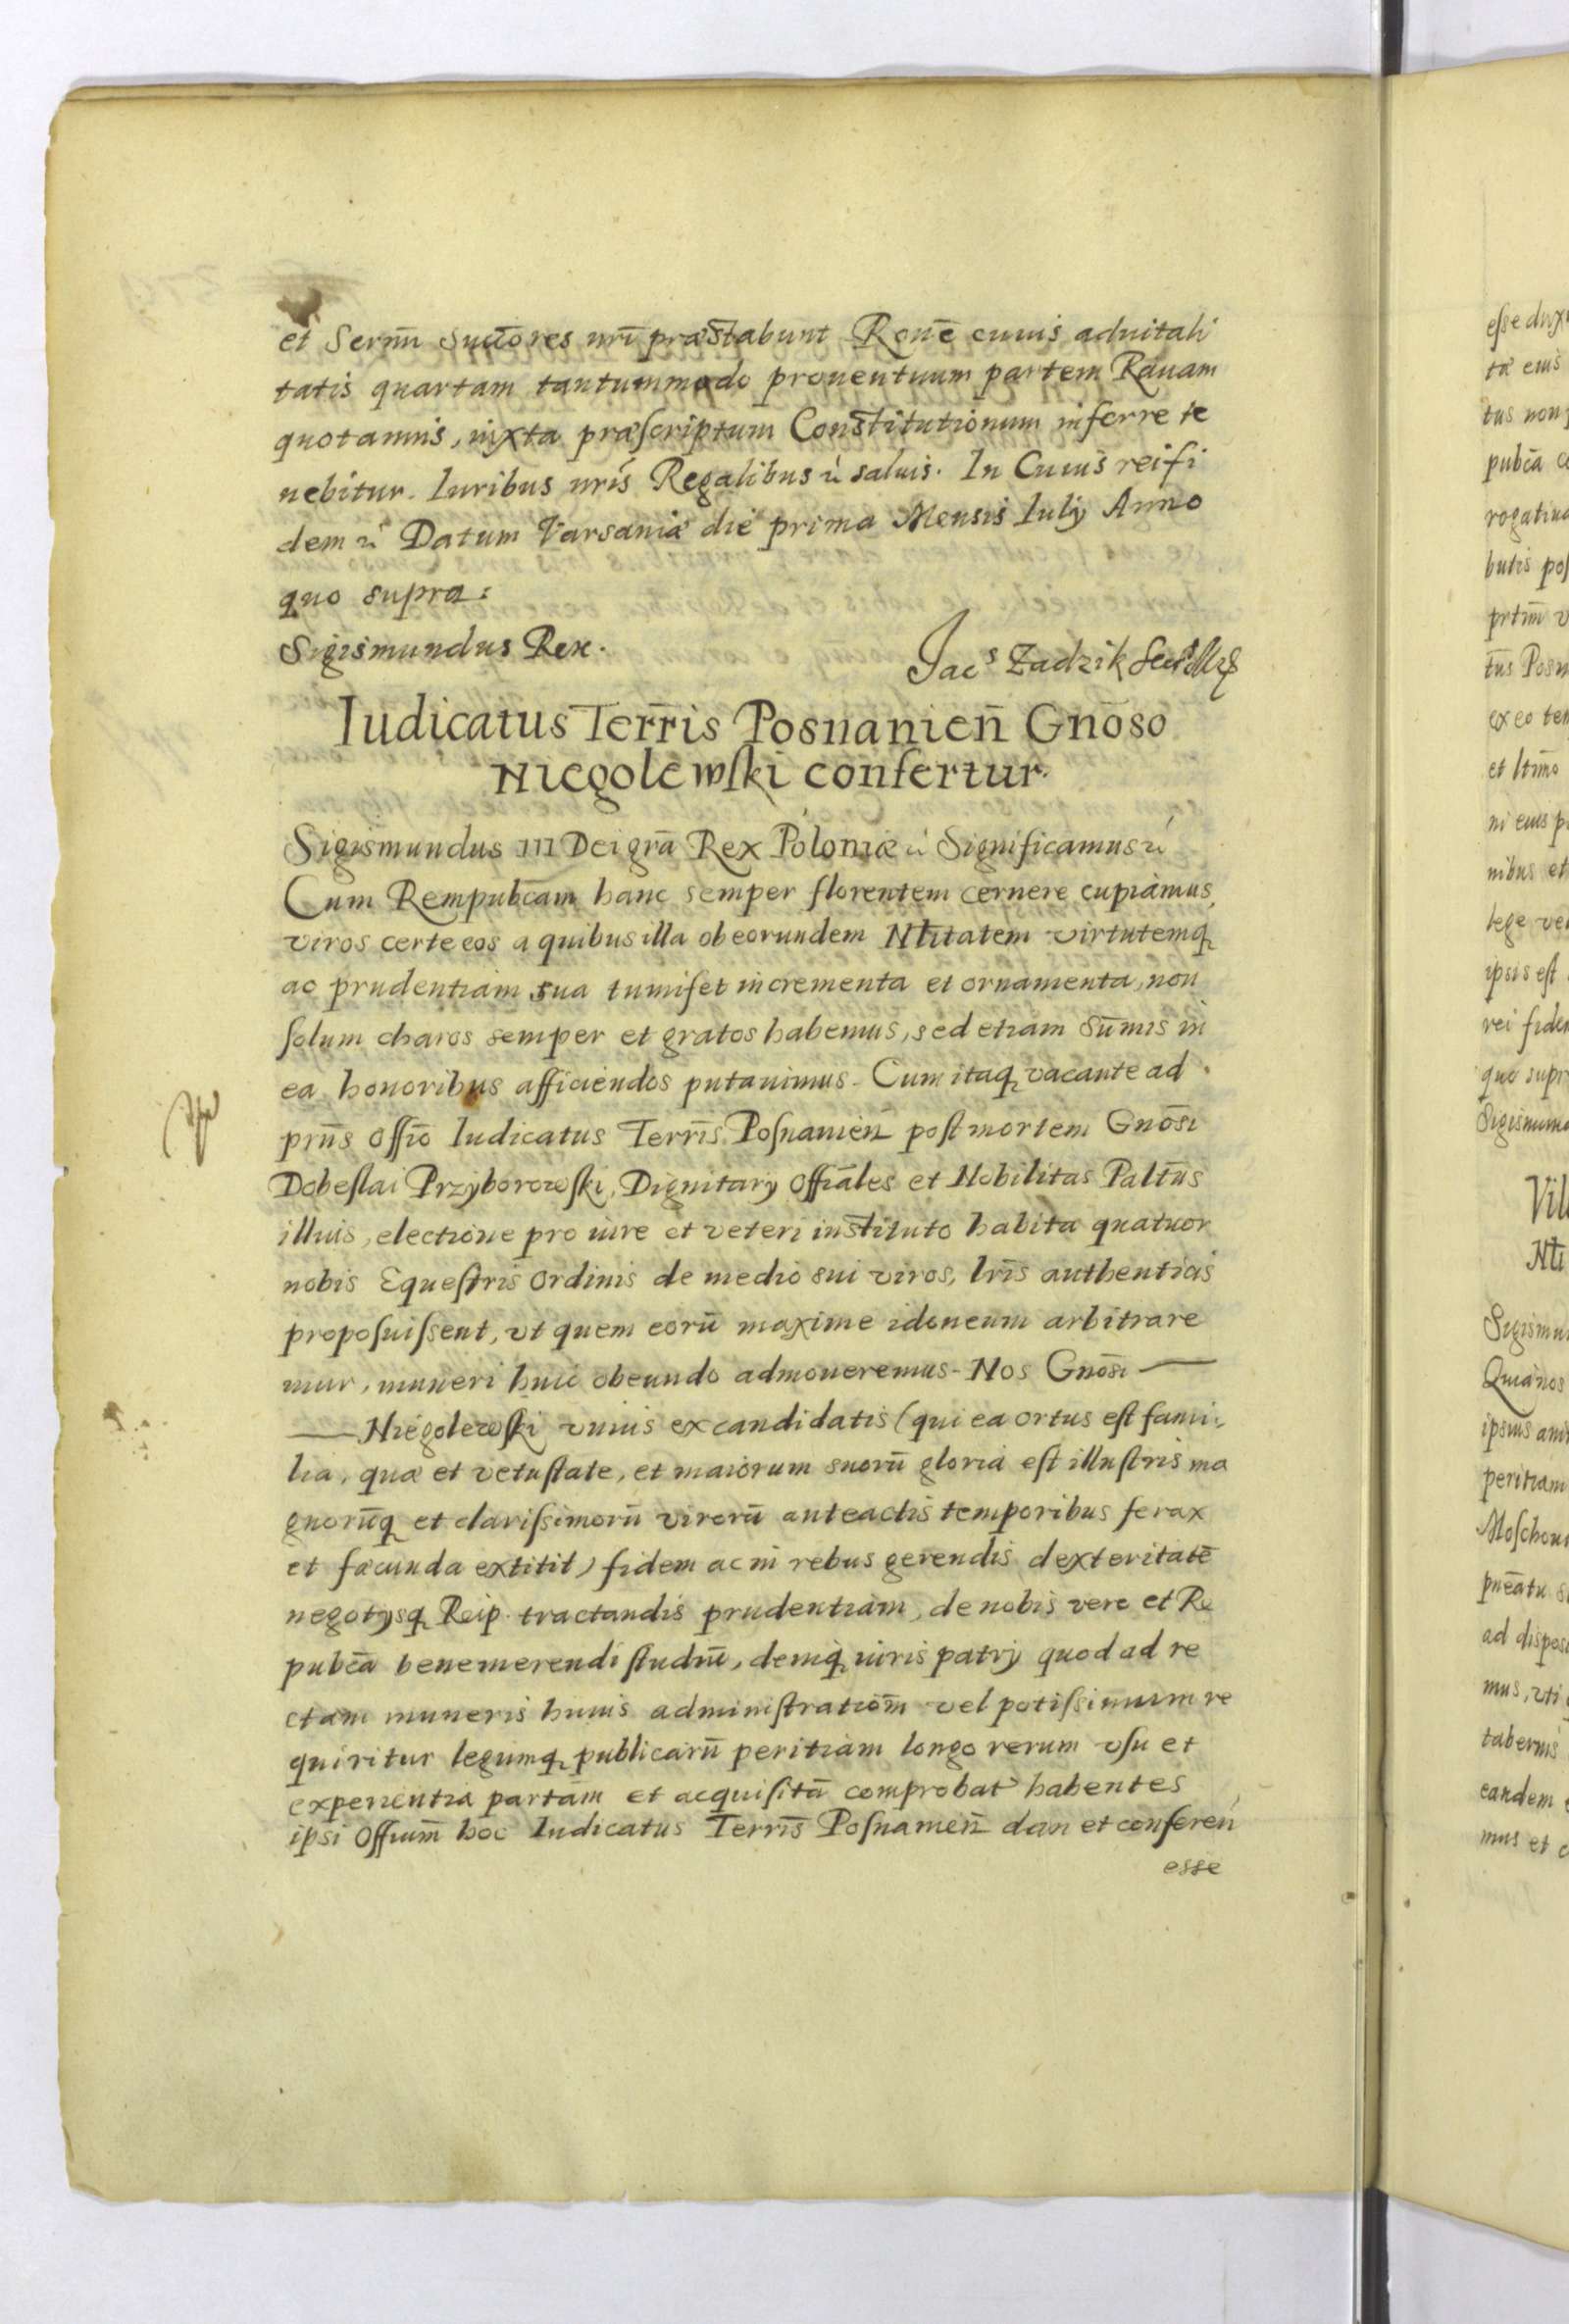 et Serm̄ Suctōres nrī præstabunt Ronē cuius aduitali
tatis quartam tantummodo prouentuum partem Rauam
quotannis, iuxta præscriptum Constitutionum inferre te
nebitur. Iuribus nrīs Regalibus salvis. In Cuius rei fi
dem Datum Varsaniæ die prima Mensis Iulij Anno
quo supra:
Sigismundus Rex.
Jacs Zadzik
Iudicatus Terrīs Posnanien̄ Gnōso
Niegolewski confertur.
Sigismundus III Dei grā Rex Poloniæ Significamus
Cum Rempubcām hanc semper florentem cernere cupiamus,
viros certe eos a quibus illa ob eorundem Nłitatem virtutemq
ac prudentiam sua tum iset incrementa et ornamenta, non
solum charos semper et gratos habemus, sed etiam sūmis in
ea honoribus afficiendos putauimus. Cum itaq vacante ad
prn̄s offīo Iudicatus Terrīs Posnanien̄ post mortem Gnōsi
Dobeslai Przyborowski, Dignitarij Offāles et Nobilitas Paltn̄s
illius, electione pro iure et veteri instituto habita quatuor
nobis Equestris Ordinis de medio sui viros, lrīs authenticis
proposuissent, vt quem eorū maxime idoneum arbitrare
mur, muneri huic obeundo admoueremus. Nos Gnōsi —
— Niegolewski vnius ex candidatis (qui ea ortus est fami
lia, quæ et vetustate, et maiorum suorū gloria est illustris ma
gnorūq et clarissimorū virorū anteactis temporibus ferax
et fæcunda extitit) fidem ac in rebus gerendis dexteritatē
negotijsq Reip. tractandis prudentiam, de nobis vere et Re
pubcā benemerendi studiū, deniq iuris patrij quod ad re
ctam muneris huius administratiōm vel potissimum re
quiritur legumq publicarū peritiam longo rerum vsu et
experientia partam et acquisitā comprobat habentes
ipsi Offium̄ hoc Iudicatus Terrīs Posnanien̄ dan et conferen
esse